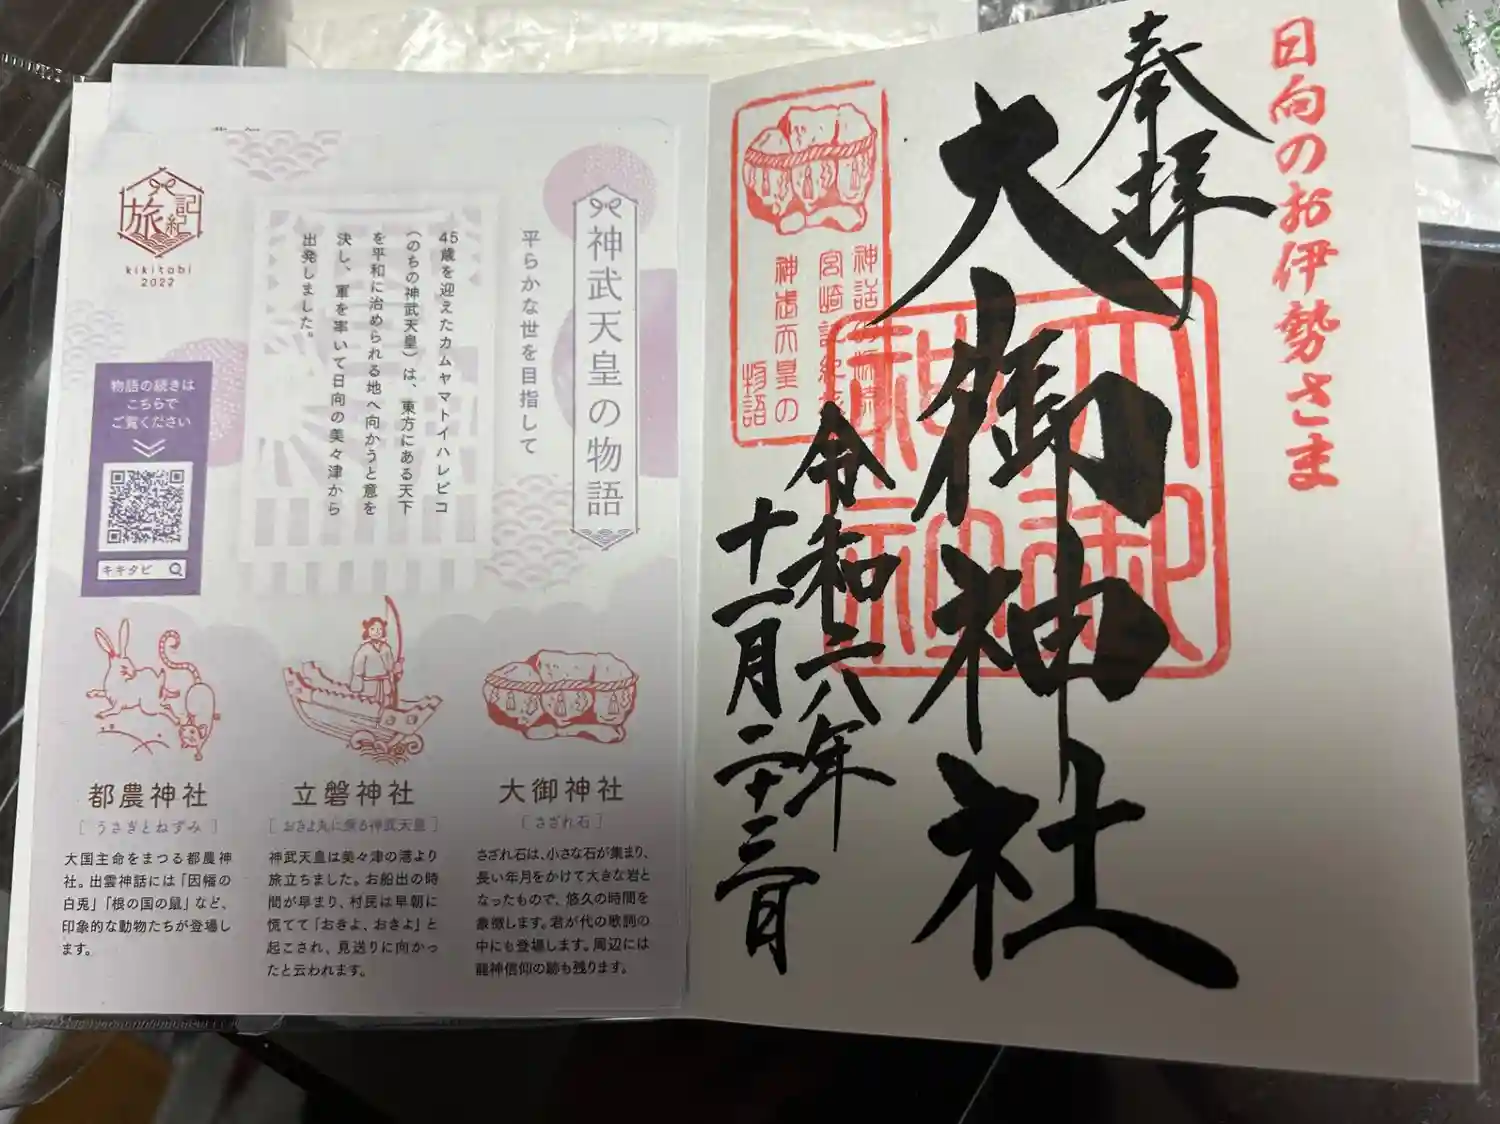 日向のお伊勢さま
奉拝
大御神社
大御
神社
神話の源流
宮崎記紀旅
神武天皇の
物語
令和六年
十一月二十三日
神武天皇の物語
平らかな世を目指して
45歳を迎えたカムヤマトイハレビコ
(のちの神武天皇)は、東方にある天下
を平和に治められる地へ向かうと意を
決し、軍を率いて日向の美々津から
出発しました。
記紀
旅
kikitabi
2022
物語の続きは
こちらで
ご覧ください
キキタビ
都農神社
[うさぎとねずみ]
大国主命をまつる都農神
社。出雲神話には「因幡の
白兎」「根の国の鼠」など、
印象的な動物たちが登場し
ます。
立磐神社
[おきよ丸に乗る神武天皇]
神武天皇は美々津の港より
旅立ちました。お船出の時
間が早まり、村民は早朝に
慌てて「おきよ、おきよ」と
起こされ、見送りに向かっ
たと云われます。
大御神社
[さざれ石]
さざれ石は、小さな石が集まり、
長い年月をかけて大きな岩と
なったもので、悠久の時間を
象徴します。君が代の歌詞の
中にも登場します。周辺には
龍神信仰の跡も残ります。